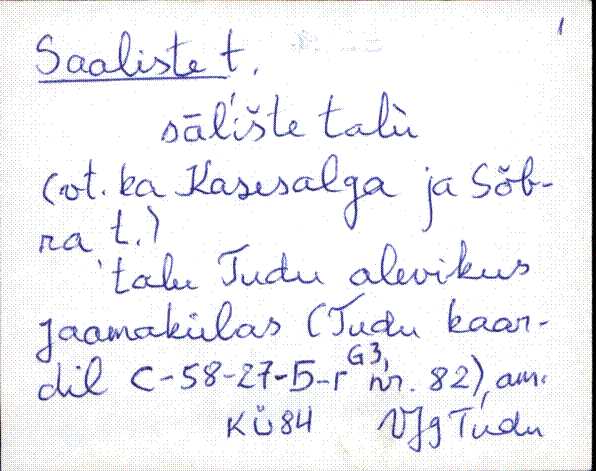 1
Saaliste t.
sāĺište talù
(vt. ka Kasesalga ja Sõb-
ra t.)
talu Tudu alevikus
Jaamakülas (Tudu kaar-
dil C-58-27-Б-г G3, nr. 82), am.
KÜ84 VJg Tudu